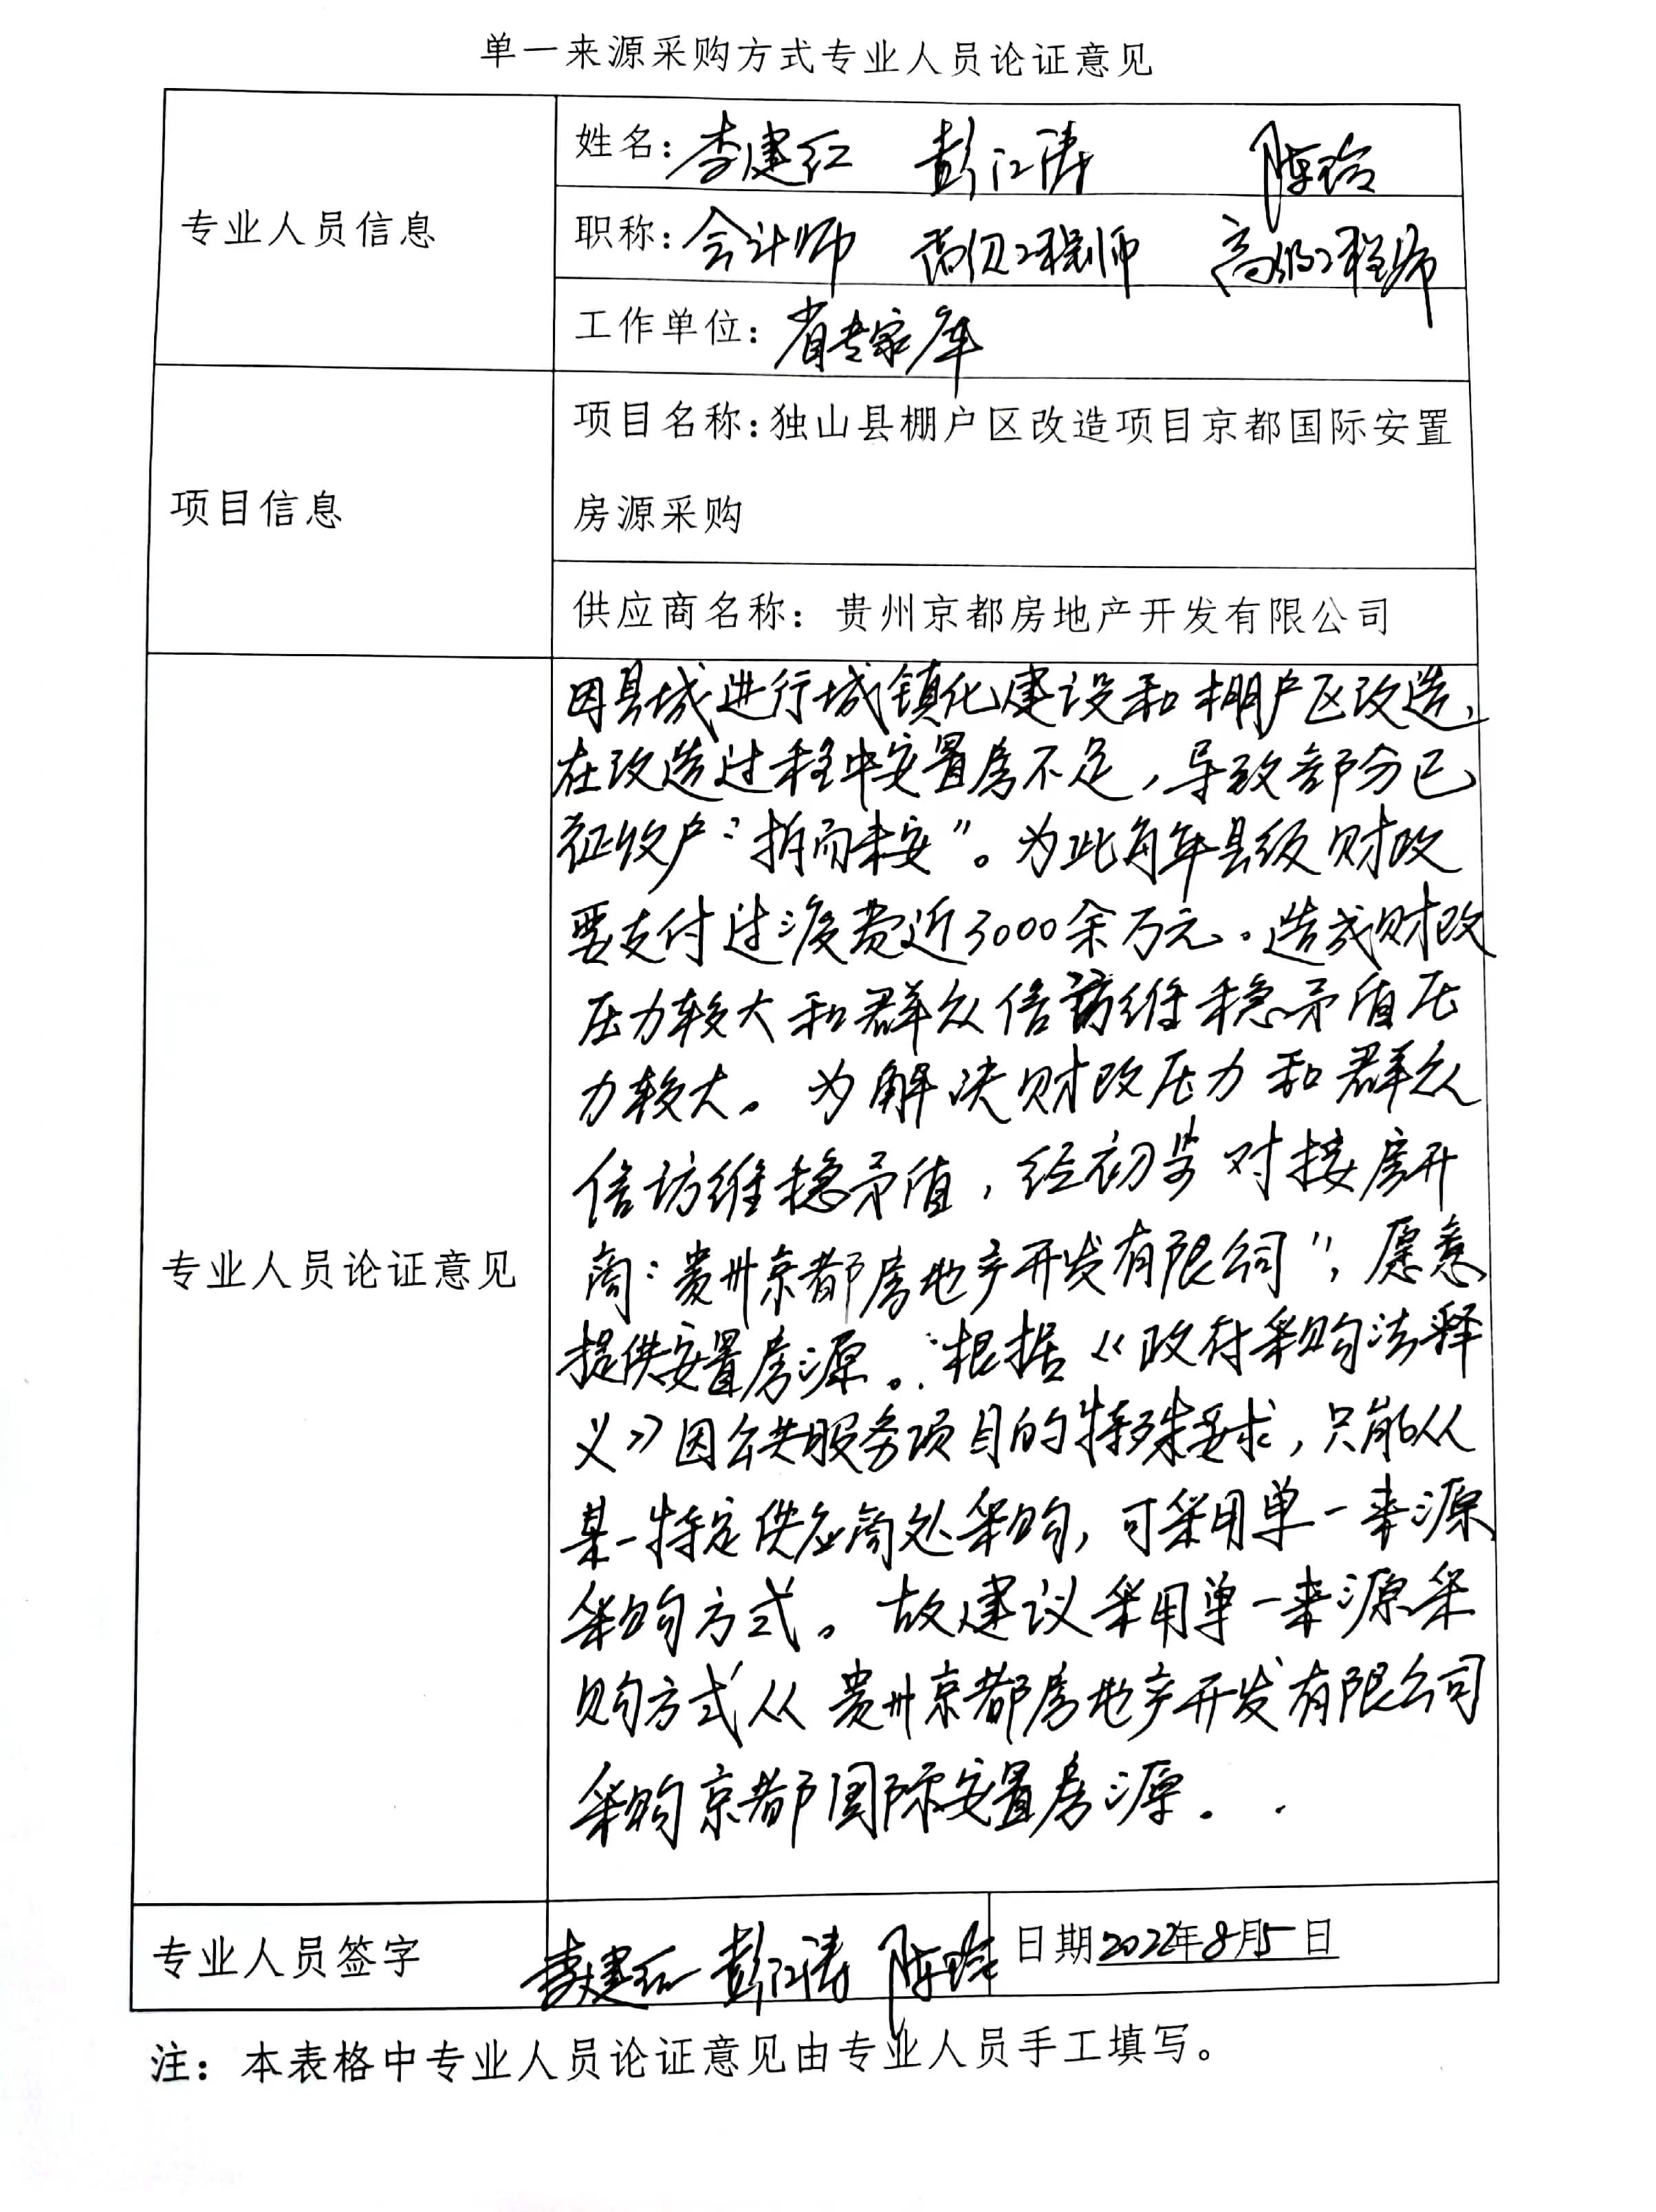 单一来源采购方式专业人员论证意见
专业人员信息
姓名：李建红 彭江涛 陈玲
职称：会计师 高级工程师 高级工程师
工作单位：省专家库
项目信息
项目名称：独山县棚户区改造项目京都国际安置
房源采购
供应商名称：贵州京都房地产开发有限公司
专业人员论证意见
因县城进行城镇化建设和棚户区改造，
在改造过程中安置房不足，导致部分已
征收户“拆而未安”。为此每年县级财政
要支付过渡费近3000余万元。造成财政
压力较大和群众信访维稳矛盾压
力较大。为解决财政压力和群众
信访维稳矛盾，经初步对接房开
商：贵州京都房地产开发有限公司”，愿意
提供安置房源。根据《政府采购法释
义》因公共服务项目的特殊要求，只能从
某一特定供应商处采购，可采用单一来源
采购方式。故建议采用单一来源采
购方式从贵州京都房地产开发有限公司
采购京都国际安置房源。
专业人员签字
李建红 彭江涛 陈玲
日期2022年8月5日
注：本表格中专业人员论证意见由专业人员手工填写。